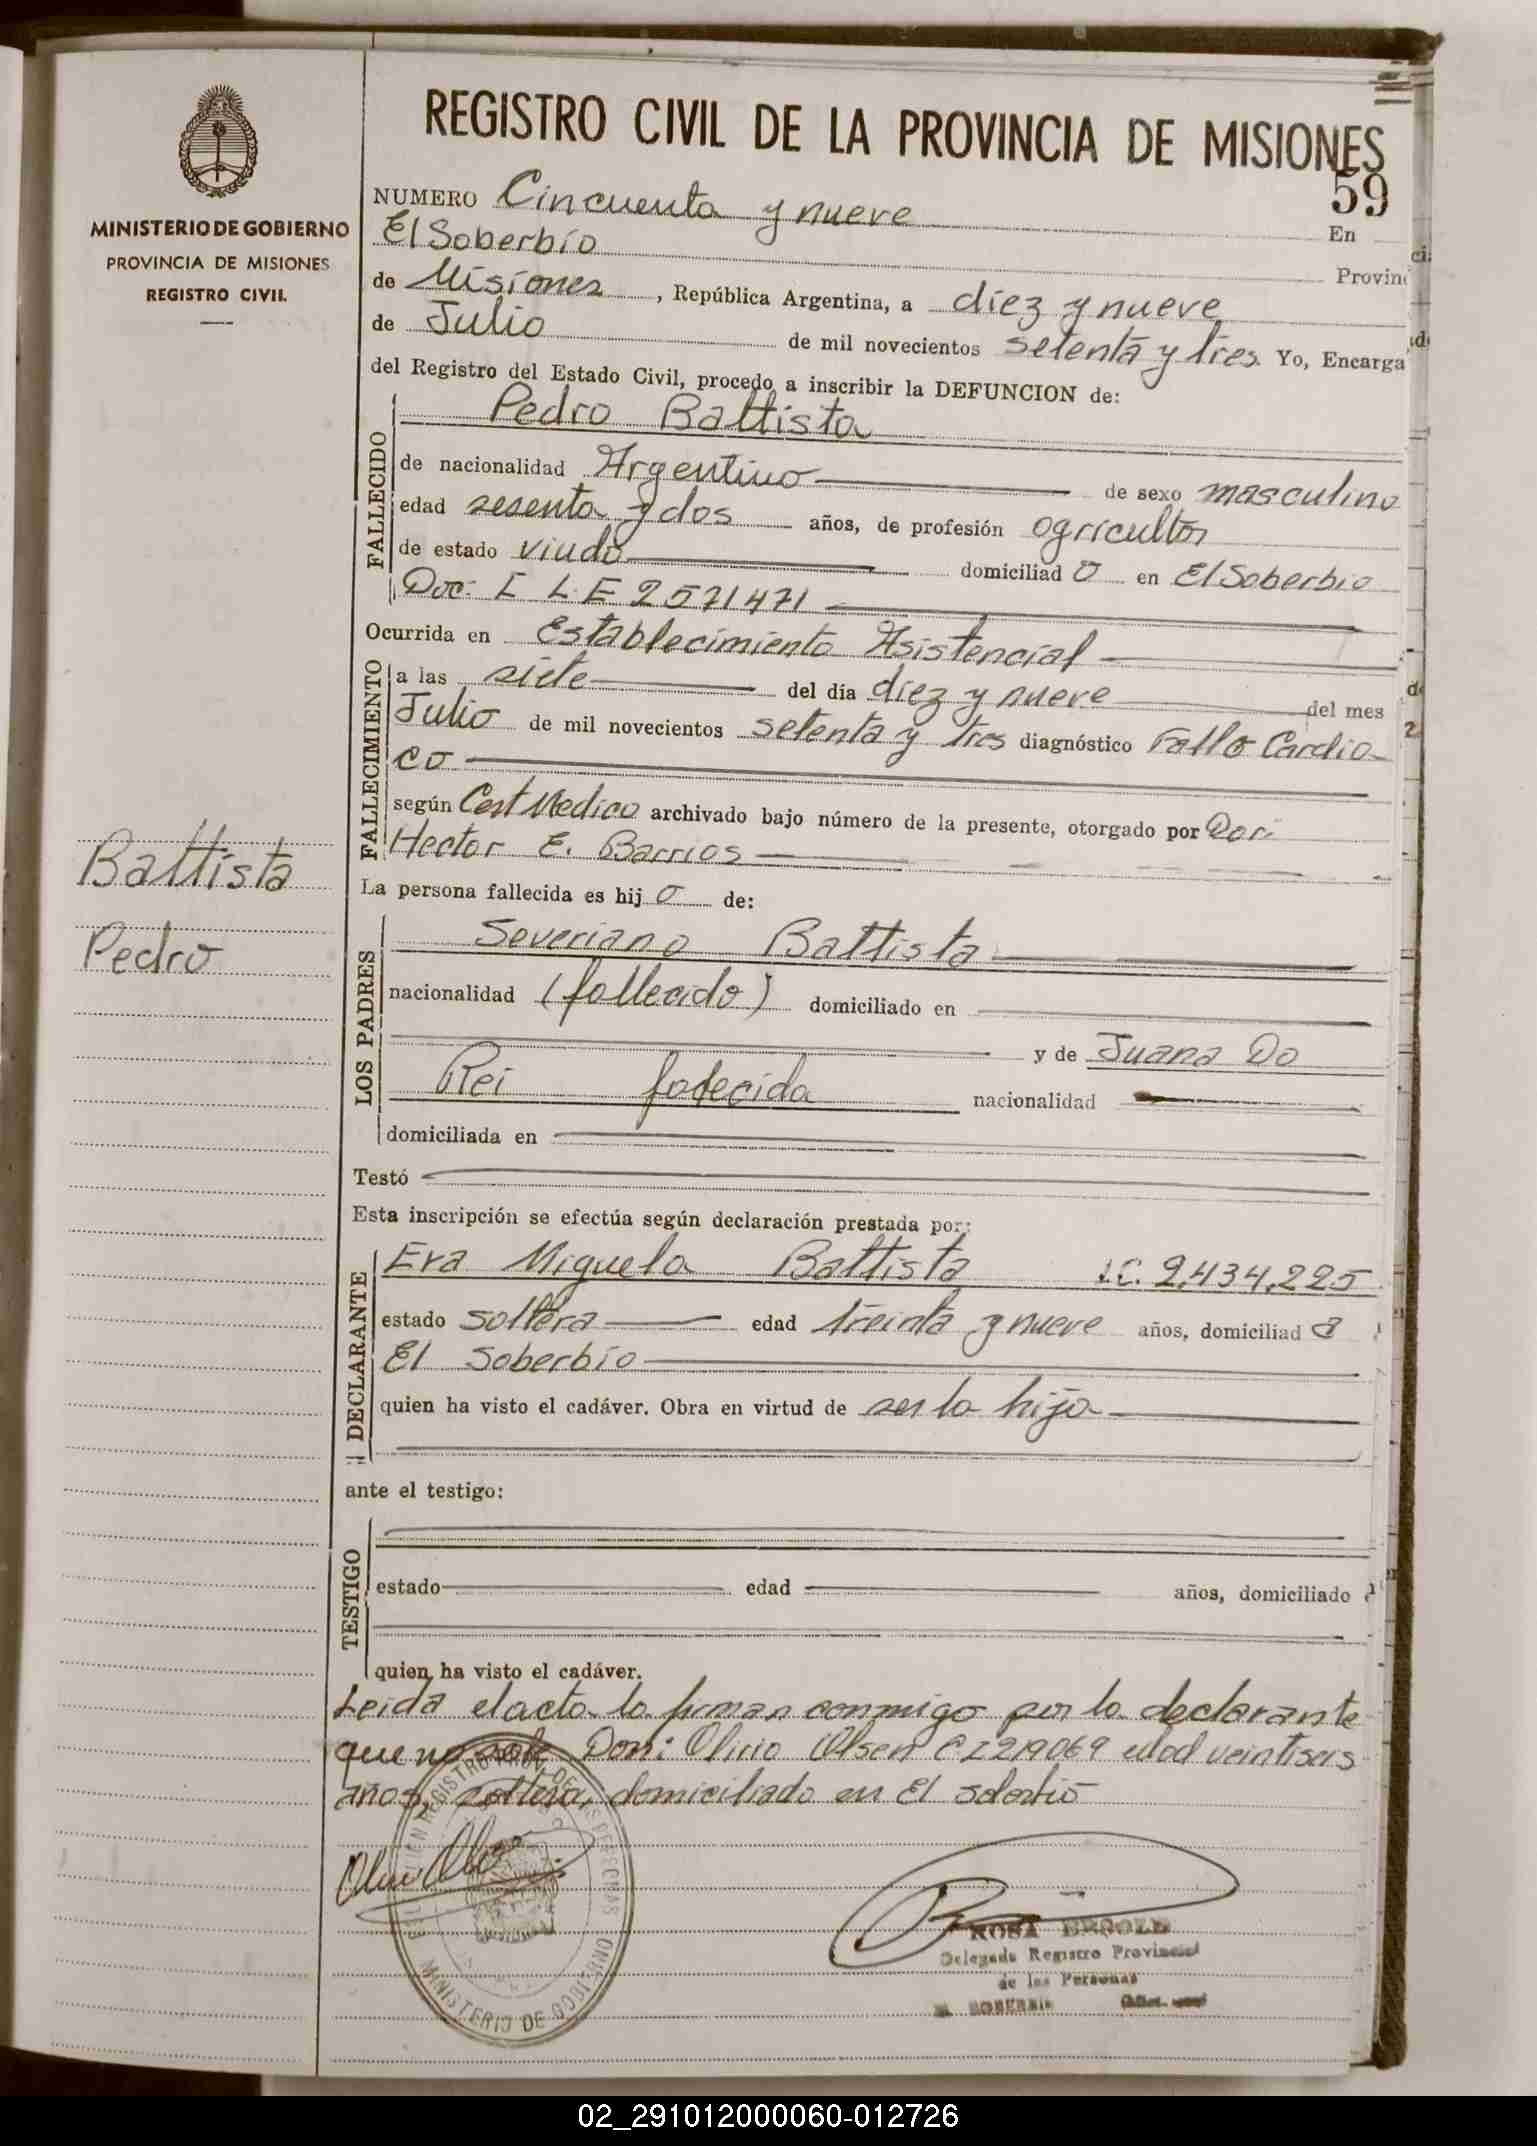 REGISTRO CIVIL DE LA PROVINCIA DE MISIONES
59
MINISTERIO DE GOBIERNO
PROVINCIA DE MISIONES
REGISTRO CIVIL
NUMERO Cincuenta y nueve En
El Soberbio Provin
de Misiones, República Argentina, a diez y nueve
de Julio de mil novecientos setenta y tres Yo, Encarga
del Registro del Estado Civil, procedo a inscribir la DEFUNCION de:
FALLECIDO
Pedro Battista
de nacionalidad Argentino de sexo masculino
edad sesenta y dos años, de profesión agricultor
de estado viudo domiciliad o en El Soberbio
Doc: I L.E 2571471
FALLECIMIENTO
Ocurrida en Establecimiento Asistencial
a las siete del día diez y nueve del mes
Julio de mil novecientos setenta y tres diagnóstico Fallo Cardia
co
según Cert Medico archivado bajo número de la presente, otorgado por
Hector E. Barrios
Battista
Pedro
La persona fallecida es hij o de:
LOS PADRES
Severiano Battista
nacionalidad (fallecido) domiciliado en
y de Juana Do
Rei fallecida nacionalidad
domiciliada en
Testó
Esta inscripción se efectúa según declaración prestada por:
DECLARANTE
Eva Miguela Battista L.C. 2,434,225
estado soltera edad treinta y nueve años, domiciliad a
El Soberbio
quien ha visto el cadáver. Obra en virtud de ser la hija
ante el testigo:
TESTIGO
estado edad años, domiciliado
quien ha visto el cadáver.
Leida el acta la firman conmigo por la declarante
que no sabe Don: Olirio Olsen C I 219069 edad veintiseis
años, soltero, domiciliado en El Soberbio
REGISTRO PROV. DE LAS PERSONAS
MINISTERIO DE GOBIERNO
ROSA
Delegada Registro Provincial
de las Personas
02_291012000060-012726